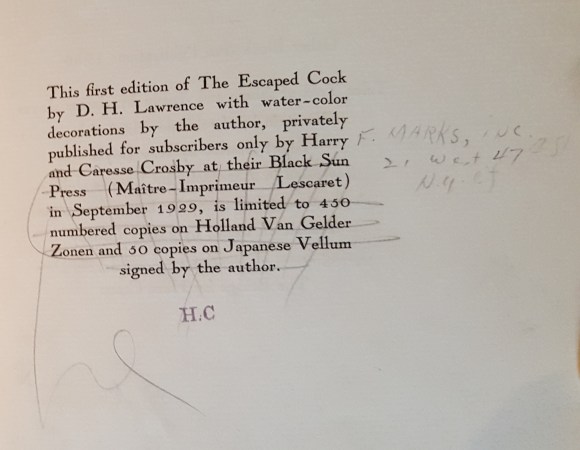 This first edition of The Escaped Cock
by D. H. Lawrence with water-color
decorations by the author, privately
published for subscribers only by Harry
and Caresse Crosby at their Black Sun
Press (Maître-Imprimeur Lescaret)
in September 1929, is limited to 450
numbered copies on Holland Van Gelder
Zonen and 50 copies on Japanese Vellum
signed by the author.
H.C
F. MARKS, INC.
21 West 47